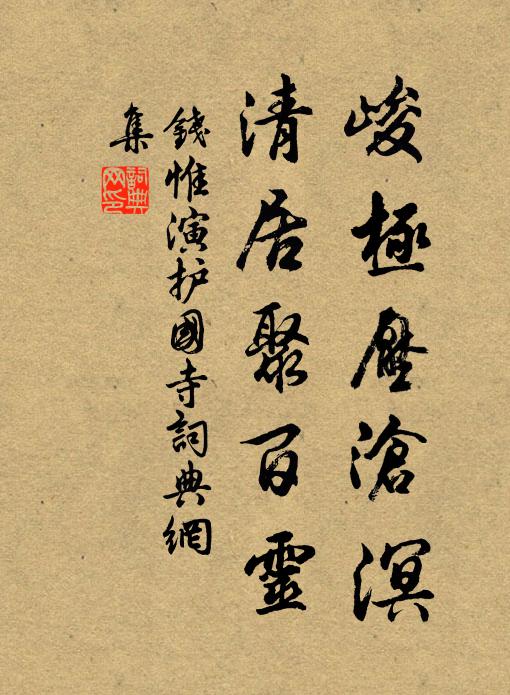 峻極壓滄溟
清居聚百靈
錢惟演护國寺詞典網
集
詞典網印